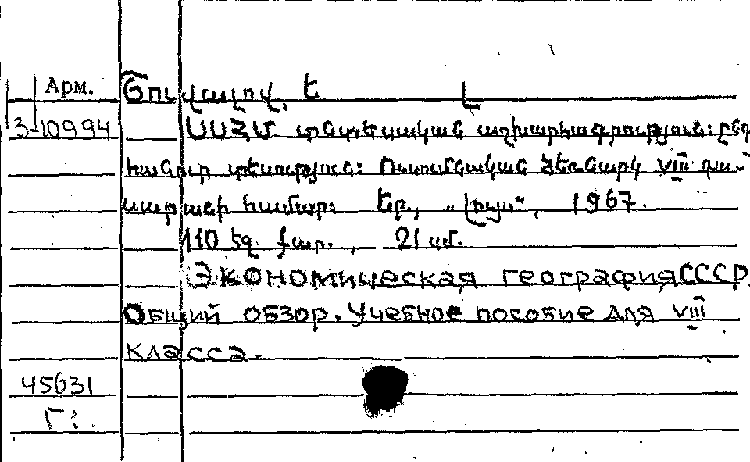 Арм. Շուվալով, Ե Լ
3-10994 ՍՍՀՄ տնտեսական աշխարհագրություն: ընդ
հանուր տեսություն: Ուսումնական ձեռնարկ VIII դա-
սարանի համար: Եր., „Լույս“, 1967.
110 էջ. քար., 21 սմ.
Экономическая география СССР.
Общий обзор. Учебное пособие для VIII
класса.
45631
Г: